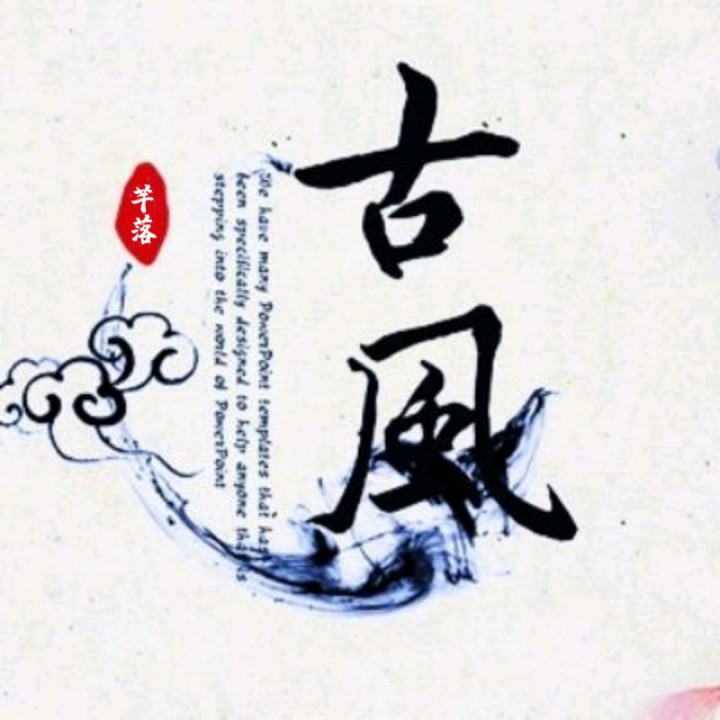 古風
We have many PowerPoint templates that has
been specifically designed to help anyone that is
stepping into the world of PowerPoint
芊落